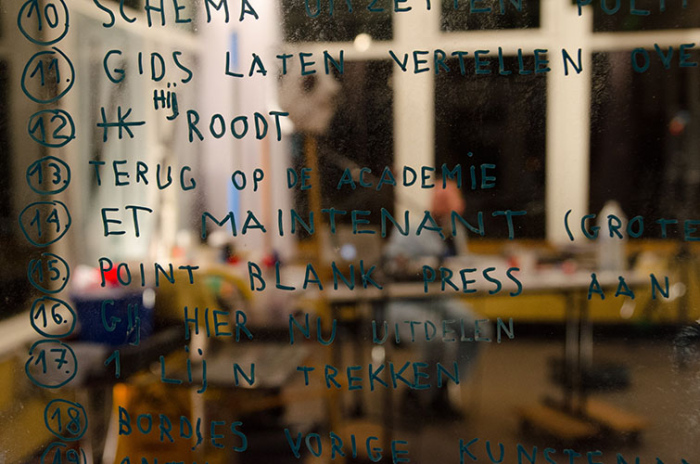 10 SCHEMA UITZETTEN POLIT
11. GIDS LATEN VERTELLEN OVE
Hij
12 IK ROODT
13. TERUG OP DE ACADEMIE
14 ET MAINTENANT (GROTE
15. POINT BLANK PRESS AAN
16. Gij HIER NU UITDELEN
17. 1 LijN TREKKEN
18 BORDJES VORIGE KUNSTENA
19